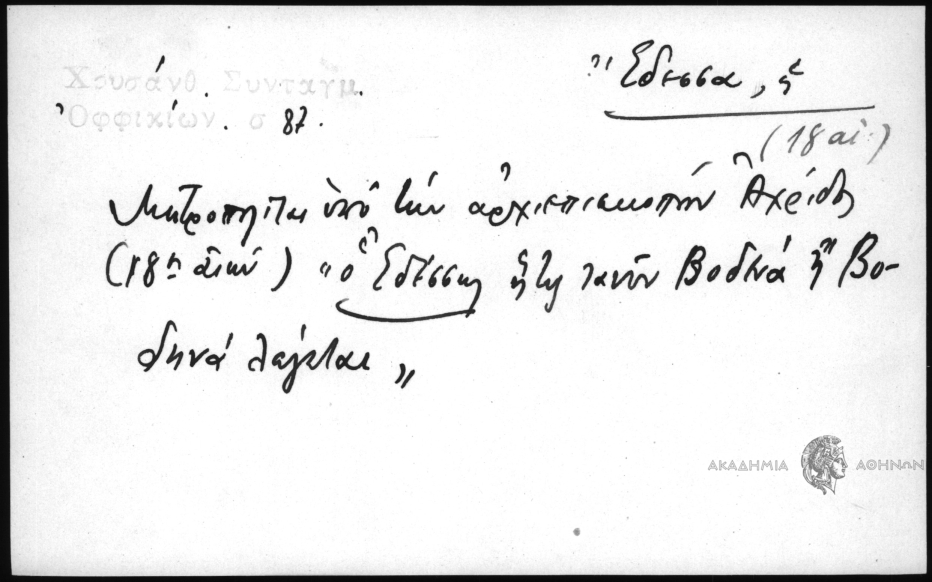 Χρυσάνθ. Συνταγμ.
Ὀφφικίων. σ 87.
Ἔδεσσα, ἡ
(18 αἰ.)
Μητροπολῖται ὑπὸ τὴν ἀρχιεπισκοπὴν Ἀχρίδος
(18ος αἰὼν) "ὁ Ἐδέσσης ἥτις τανῦν Βοδενά ἢ Βο-
δηνά λέγεται"
ΑΚΑΔΗΜΙΑ ΑΘΗΝΩΝ